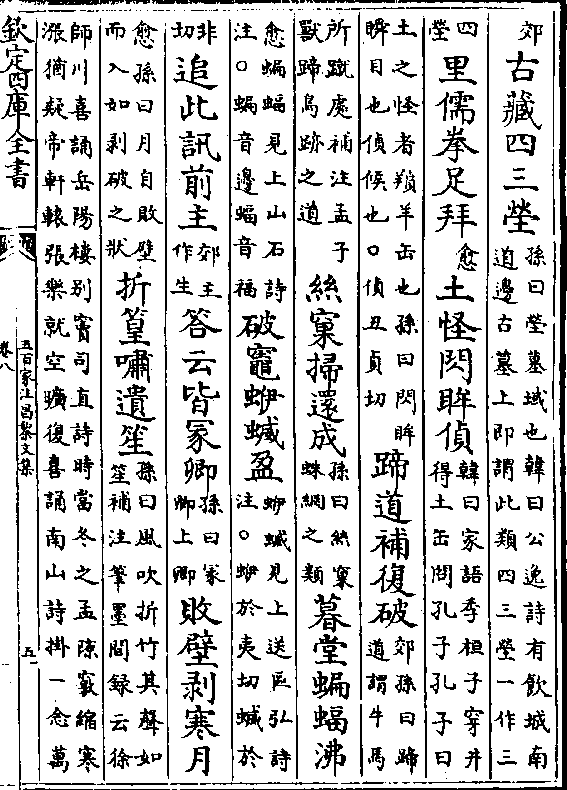 郊古藏四三塋孫曰塋墓域也韓曰公逸詩有飲城南道邊古墓上即謂此類四三塋一作三
四塋里儒拳足拜愈土怪閃眸偵韓曰家語季桓子穿井得土缶問孔子孔子曰
土之怪者羵羊缶也孫曰閃眸瞬目也偵候也○偵丑貞切蹄道補復破郊孫曰蹄道謂牛馬
所蹴處補注孟子獸蹄鳥跡之道絲窠掃還成孫曰絲窠蛛網之類暮堂蝙蝠沸
愈蝙蝠見上山石詩注○蝙音邊蝠音福破竈蛜蝛盈蛜蝛見上送區弘詩注○蛜於夷切蝛於
非切追此訊前主郊主作生答云皆冢卿孫曰冢卿上卿敗壁剥寒月
愈孫曰月自敗壁而入如剥破之狀折篁嘯遺笙孫曰風吹折竹其聲如笙補注筆墨間録云徐
師川喜誦岳陽樓别竇司直詩時當冬之孟隙竅縮寒漲猶疑帝軒轅張樂就空曠復喜誦南山詩掛一念萬
欽定四庫全書
五百家注昌黎文集
卷八
五